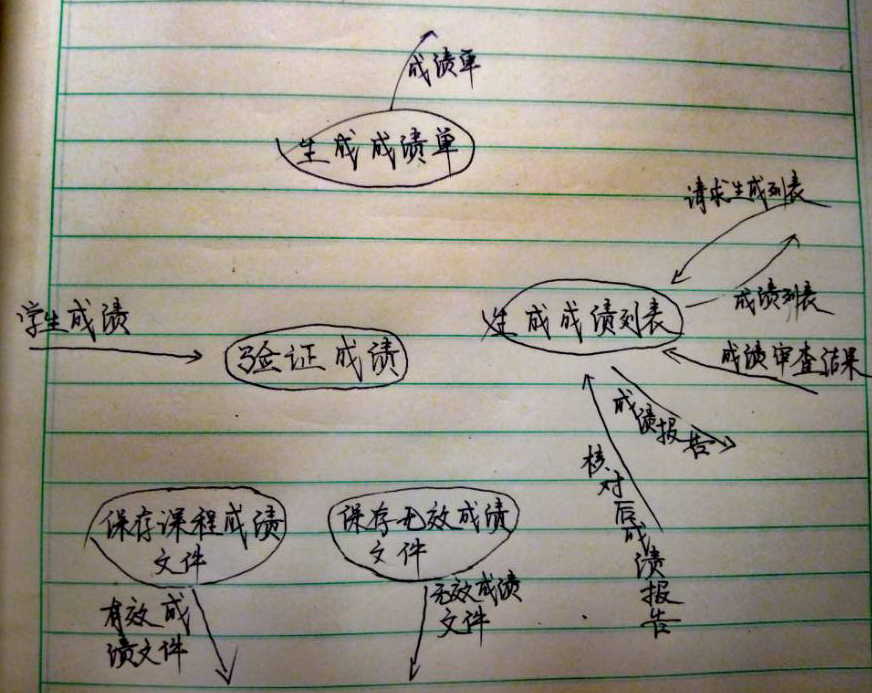 成绩单
生成成绩单
请求生成列表
学生成绩
生成成绩列表
成绩列表
验证成绩
成绩审查结果
成绩报告
核对后成绩报告
保存课程成绩
文件
保存无效成绩
文件
有效成
绩文件
无效成绩
文件